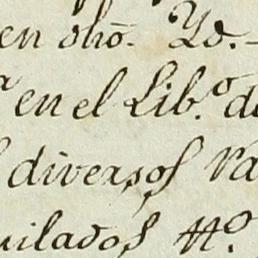 en dho. Yo.
en el Lib.º de
diversos Va
uilados